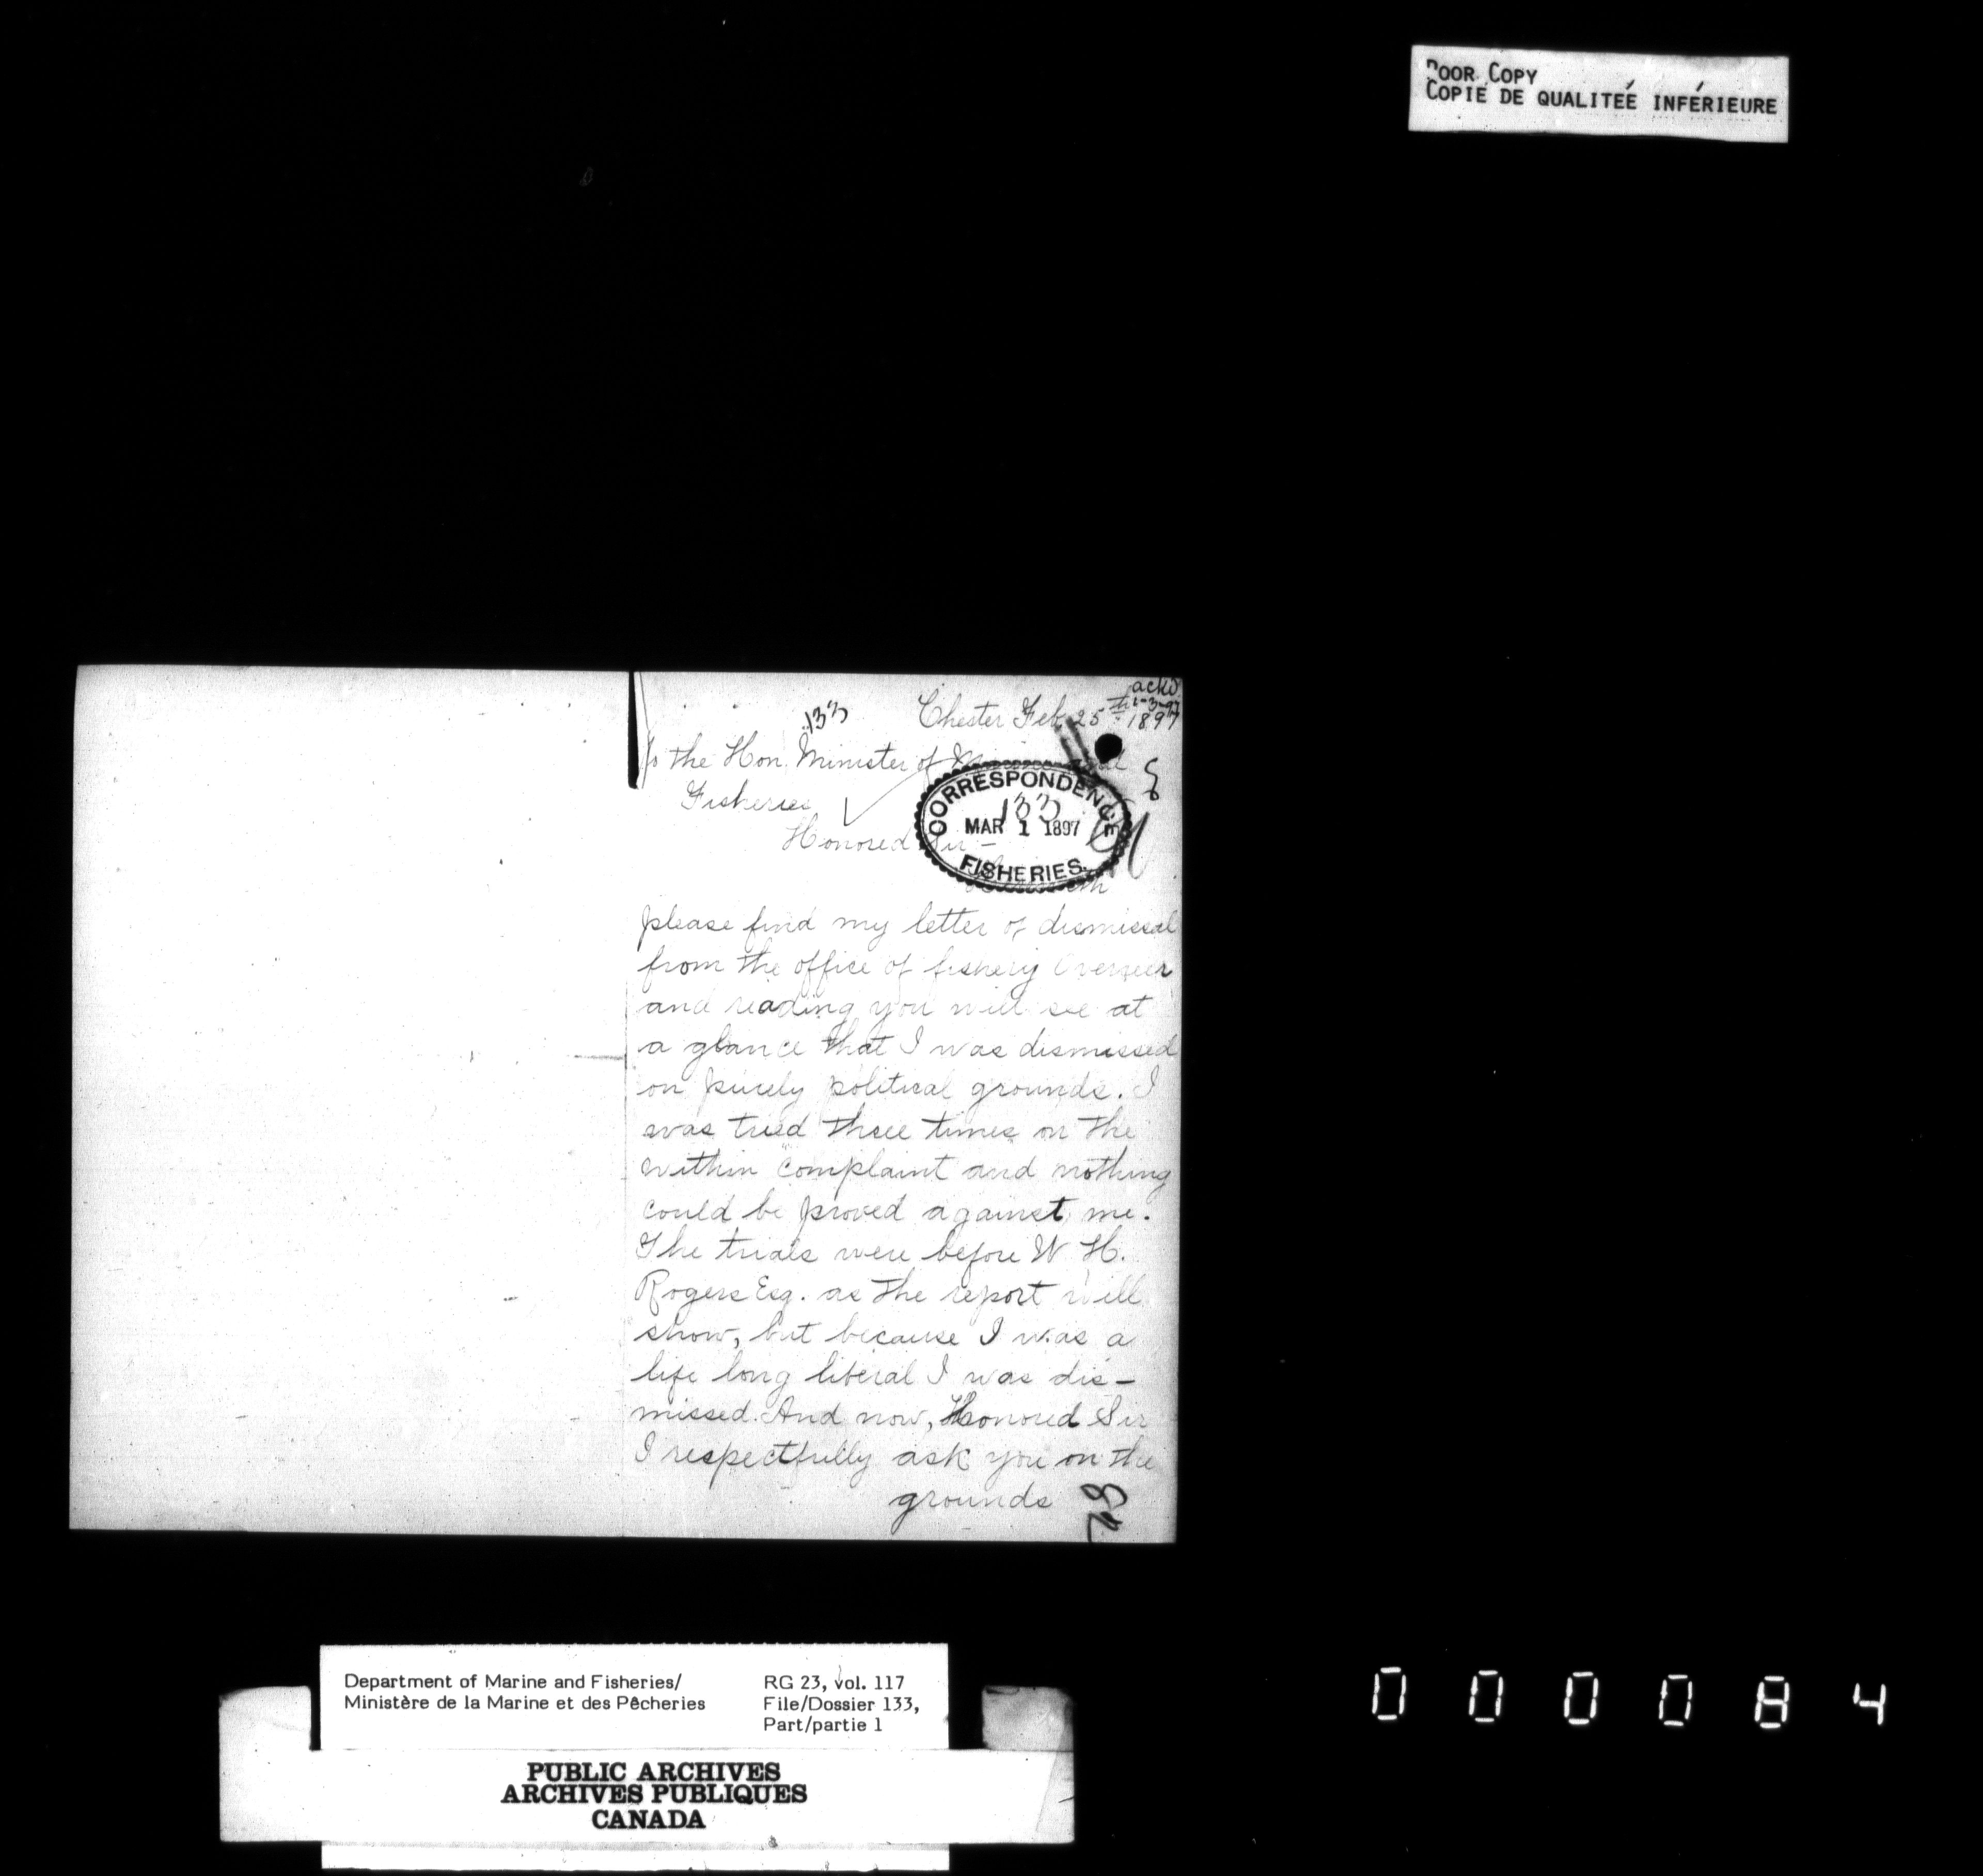 POOR COPY
COPIE DE QUALITEÉ INFÉRIEURE
ackd
1-3-97
133
Chester Feb. 25th 1897
To the Hon. Minister of Marine and
Fisheries
Honored Sir –
CORRESPONDENCE
133
MAR 1 1897
FISHERIES.
Herewith
please find my letter of dismissal
from the office of fishery Overseer
and reading you will see at
a glance that I was dismissed
on purely political grounds. I
was tried three times on the
within complaint and nothing
could be proved against me.
The trials were before W H.
Rogers Esq. as the report will
show, but because I was a
life long liberal I was dis–
missed. And now, Honored Sir
I respectfully ask you on the
grounds
Department of Marine and Fisheries/
Ministère de la Marine et des Pêcheries
RG 23, vol. 117
File/Dossier 133,
Part/partie 1
PUBLIC ARCHIVES
ARCHIVES PUBLIQUES
CANADA
000084